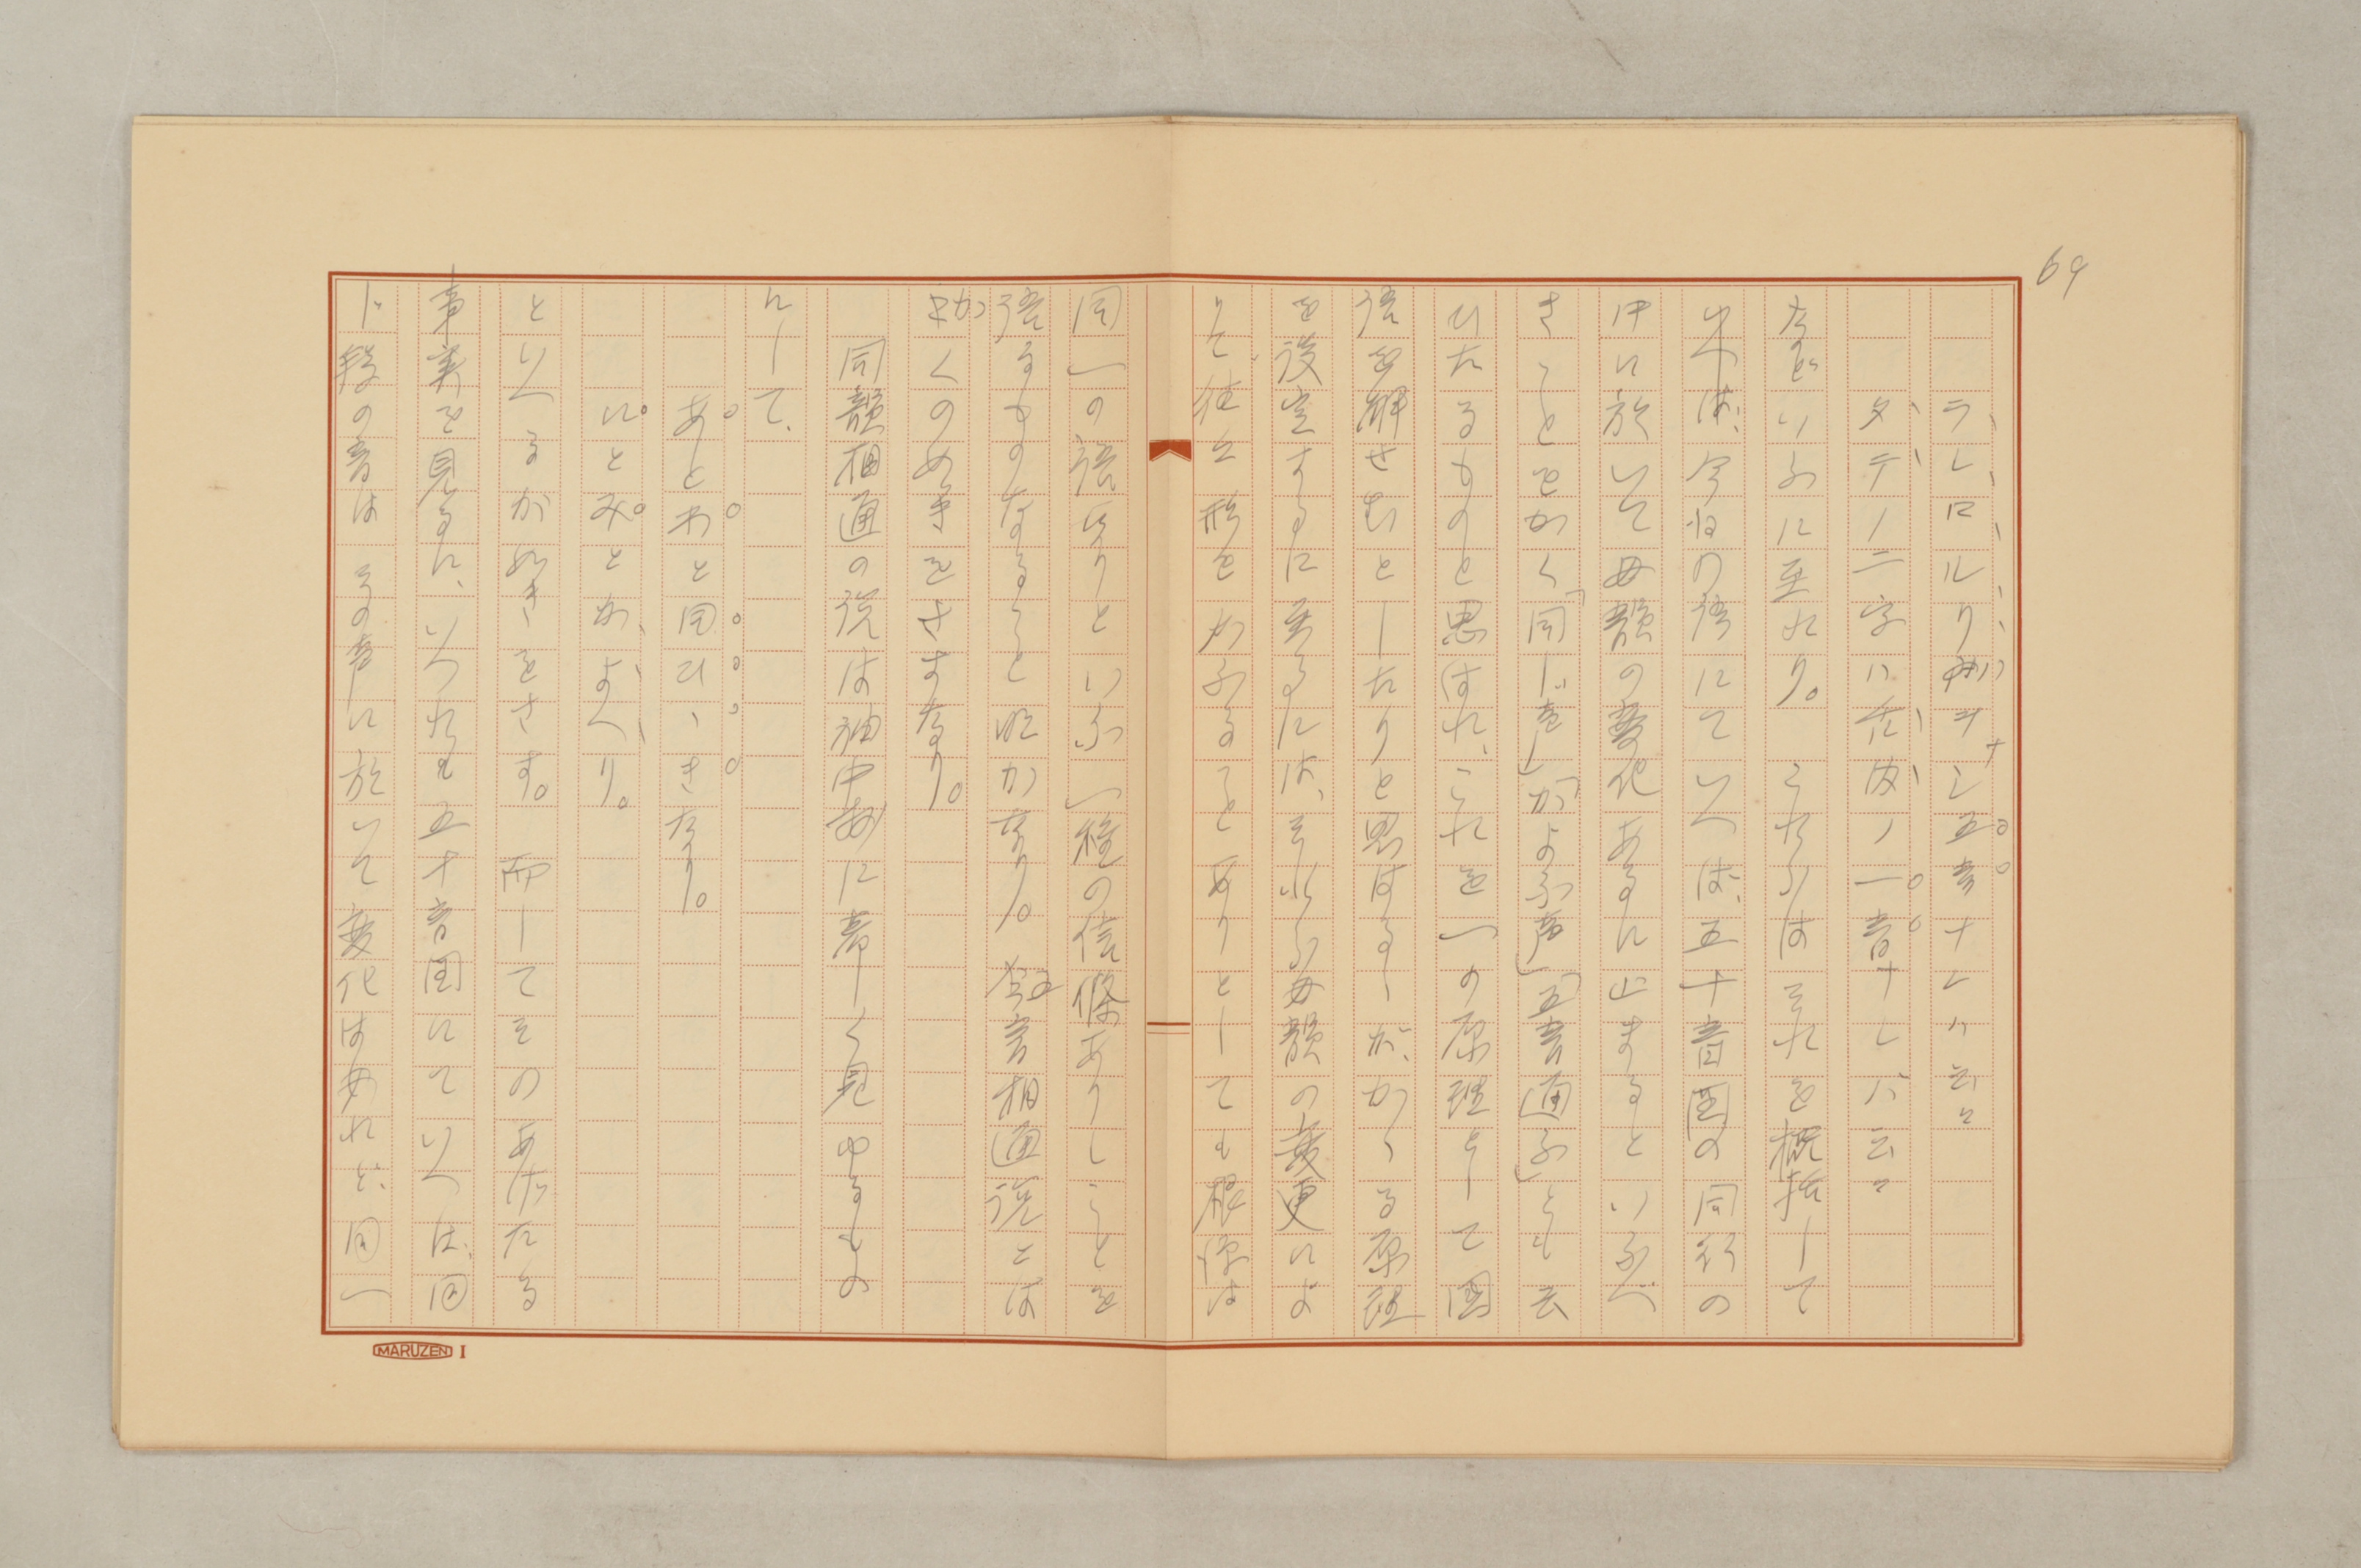 69
ラレロルリ
タテノ二字ハ
などいふに至れり。これらはそれを概括して
いへば、今日の語にていへば、五十音図の同行の
中に於いて母韻の変化あるに止まるといふべ
きことをかく「同じ声」「かよふ声」「五音通ふ」とも云
ひたるものと思はれ、これを一の原理として国
語を解せむとしたりと思はるゝが、かゝる原理
を設定するに至るには、それら母韻の変更によ
りて、往々形をかふることありとしても根源は
同一の語なりといふ一種の信條ありしことを
語るものなること明かなり。五音相通説とは
かくのめきをさすなり。
同韻相通の説は袖中抄に著しく見ゆるもの
にして、
あとわと同ひゝきなり。
にとみとかよへり。
といへるが如きをさす。而してそのあげたる
事実を見るに、いづれも五十音図にていへば、同
じ段の音はその声に於いて変化はあれど、同一
MARUZEN I